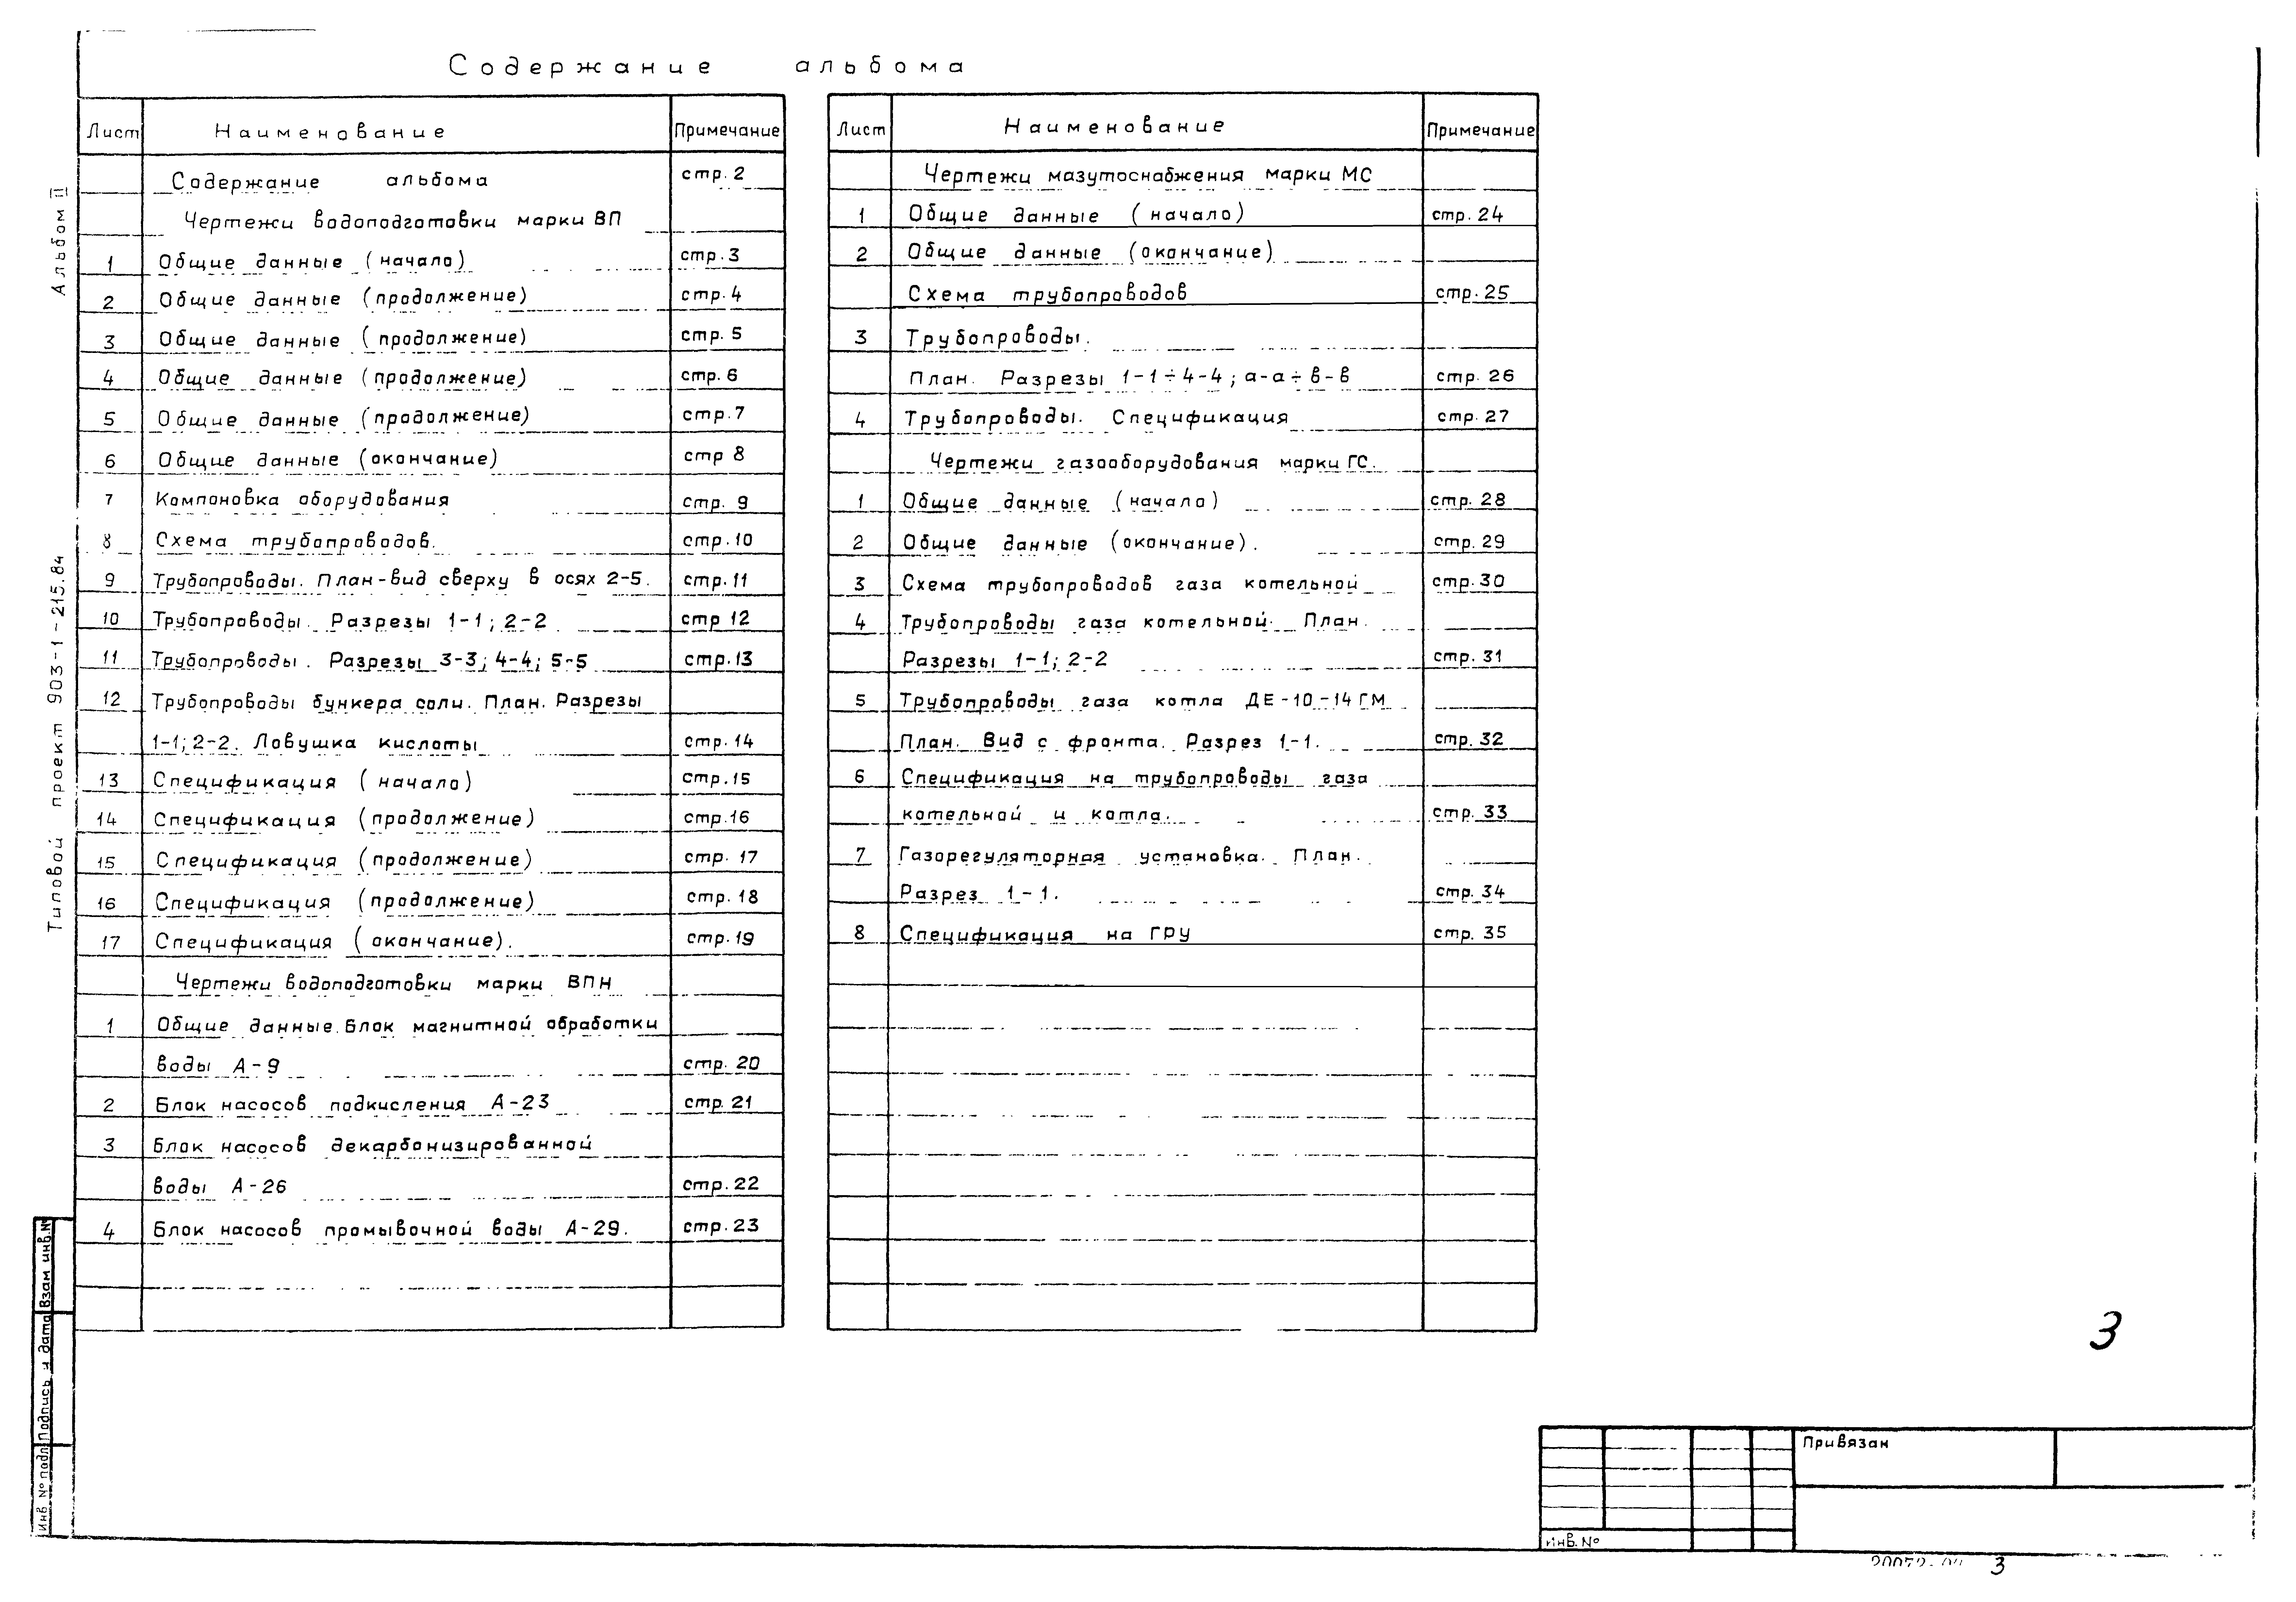 Содержание альбома
Лист Наименование Примечание
Содержание альбома стр. 2
Чертежи водоподготовки марки ВП
1 Общие данные (начало) стр. 3
2 Общие данные (продолжение) стр. 4
3 Общие данные (продолжение) стр. 5
4 Общие данные (продолжение) стр. 6
5 Общие данные (продолжение) стр. 7
6 Общие данные (окончание) стр 8
7 Компоновка оборудования стр. 9
8 Схема трубопроводов. стр. 10
9 Трубопроводы. План-вид сверху в осях 2-5. стр. 11
10 Трубопроводы. Разрезы 1-1; 2-2 стр 12
11 Трубопроводы. Разрезы 3-3; 4-4; 5-5 стр. 13
12 Трубопроводы бункера соли. План. Разрезы
1-1; 2-2. Ловушка кислоты стр. 14
13 Спецификация (начало) стр. 15
14 Спецификация (продолжение) стр. 16
15 Спецификация (продолжение) стр. 17
16 Спецификация (продолжение) стр. 18
17 Спецификация (окончание). стр. 19
Чертежи водоподготовки марки ВПН
1 Общие данные. Блок магнитной обработки
воды А-9 стр. 20
2 Блок насосов подкисления А-23 стр. 21
3 Блок насосов декарбонизированной
воды А-26 стр. 22
4 Блок насосов промывочной воды А-29. стр. 23
Лист Наименование Примечание
Чертежи мазутоснабжения марки МС
1 Общие данные (начало) стр. 24
2 Общие данные (окончание)
Схема трубопроводов стр. 25
3 Трубопроводы.
План. Разрезы 1-1÷4-4; а-а÷в-в стр. 26
4 Трубопроводы. Спецификация стр. 27
Чертежи газооборудования марки ГС.
1 Общие данные (начало) стр. 28
2 Общие данные (окончание). стр. 29
3 Схема трубопроводов газа котельной стр. 30
4 Трубопроводы газа котельной. План.
Разрезы 1-1; 2-2 стр. 31
5 Трубопроводы газа котла ДЕ-10-14ГМ
План. Вид с фронта. Разрез 1-1. стр. 32
6 Спецификация на трубопроводы газа
котельной и котла. стр. 33
7 Газорегуляторная установка. План.
Разрез 1-1. стр. 34
8 Спецификация на ГРУ стр. 35
Альбом II
Типовой проект 903-1-215.84
Взам инв.№
Подпись и дата
Инв № подл
3
Привязан
Инв. №
3